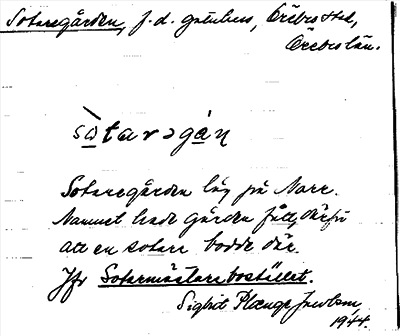 Sotaregården, f.d. gårdens, Örebro stad,
Örebro län.
sòtarəgáɳ
Sotaregården låg på Norr.
Namnet hade gården fått, därför
att en sotare bodde där.
Jfr Sotarmästarebostället.
Sigbrit Plænge Jacobson,
1944.